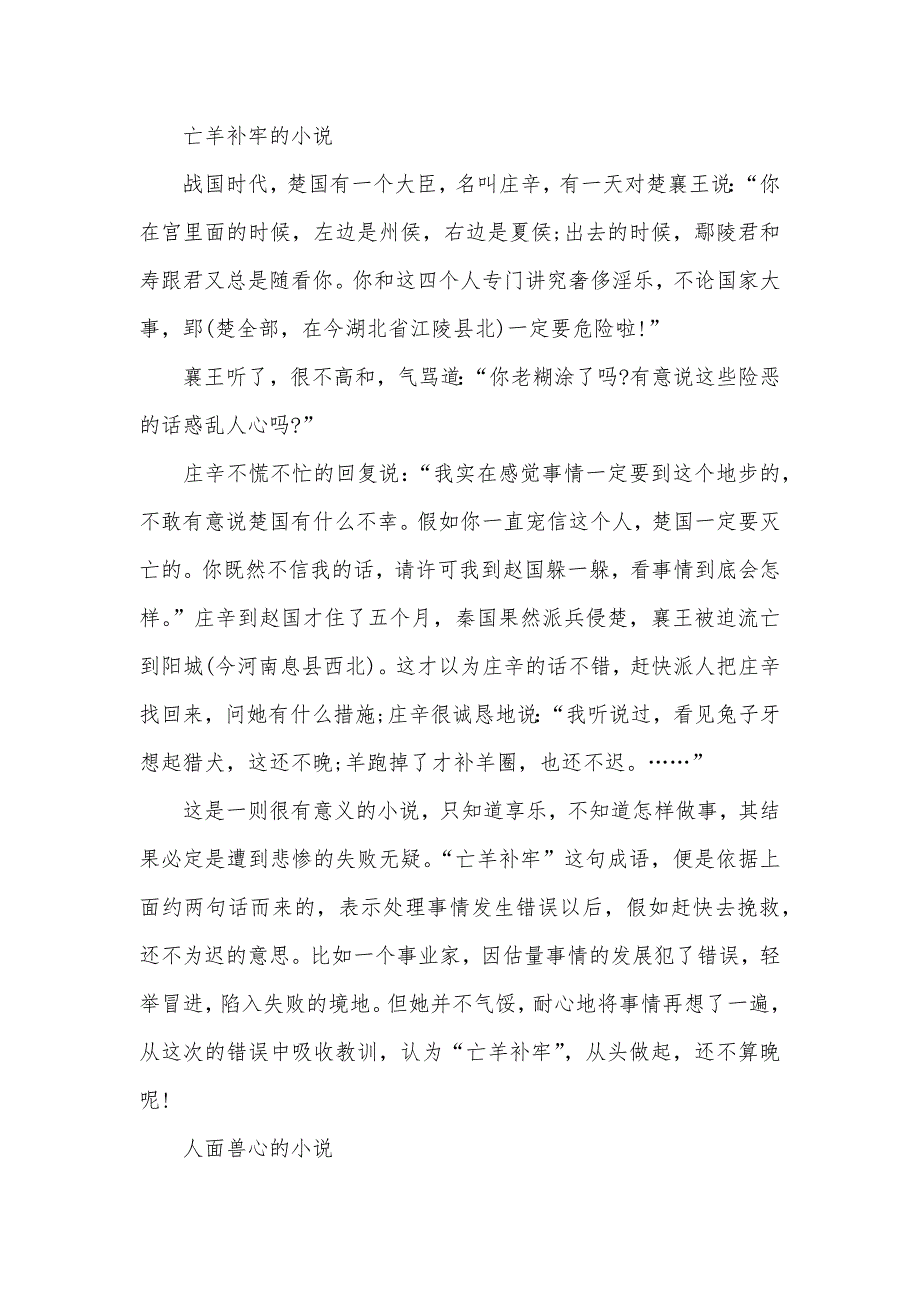 亡羊补牢的小说
战国时代，楚国有一个大臣，名叫庄辛，有一天对楚襄王说：“你
在宫里面的时候，左边是州侯，右边是夏侯;出去的时候，鄢陵君和
寿跟君又总是随看你。你和这四个人专门讲究奢侈淫乐，不论国家大
事，郢(楚全部，在今湖北省江陵县北)一定要危险啦!”
襄王听了，很不高和，气骂道：“你老糊涂了吗?有意说这些险恶
的话惑乱人心吗?”
庄辛不慌不忙的回复说：“我实在感觉事情一定要到这个地步的，
不敢有意说楚国有什么不幸。假如你一直宠信这个人，楚国一定要灭
亡的。你既然不信我的话，请许可我到赵国躲一躲，看事情到底会怎
样。”庄辛到赵国才住了五个月，秦国果然派兵侵楚，襄王被迫流亡
到阳城(今河南息县西北)。这才以为庄辛的话不错，赶快派人把庄辛
找回来，问她有什么措施;庄辛很诚恳地说：“我听说过，看见兔子牙
想起猎犬，这还不晚;羊跑掉了才补羊圈，也还不迟。……”
这是一则很有意义的小说，只知道享乐，不知道怎样做事，其结
果必定是遭到悲惨的失败无疑。“亡羊补牢”这句成语，便是依据上
面约两句话而来的，表示处理事情发生错误以后，假如赶快去挽救，
还不为迟的意思。比如一个事业家，因估量事情的发展犯了错误，轻
举冒进，陷入失败的境地。但她并不气馁，耐心地将事情再想了一遍，
从这次的错误中吸收教训，认为“亡羊补牢”，从头做起，还不算晚
呢!
人面兽心的小说